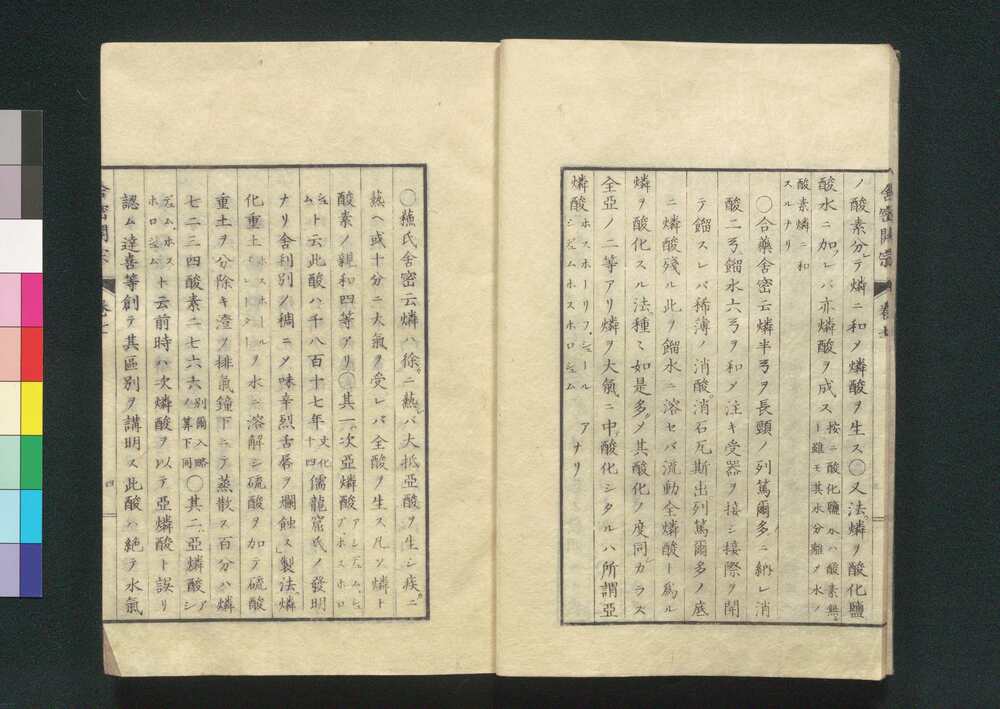 舎密開宗 巻七
ノ酸素分テ燐ニ和メ燐酸ヲ生ス〇又法燐ヲ酸化塩
酸水ニ加レバ亦燐酸ヲ成ス按ニ酸化鹽水ハ酸素無シト雖モ其水分離メ水ノ
酸素燐ニ和スルナリ
〇合藥舎密云燐半弓ヲ長頸ノ列篤爾多ニ納レ消
酸二弓餾水六弓ヲ和メ注キ受器ヲ接シ接際ヲ開
テ餾スレバ稀薄ノ消酸消石瓦斯出列篤爾多ノ底
ニ燐酸殘ル此ヲ餾水ニ溶セバ流動全燐酸ト為ル
燐ヲ酸化スル法種々如是多シメ其酸化ノ度同カラス
全亞ノ二等アリ燐ヲ大氣ニ中酸化シタルハ所謂亞
燐酸ホスホーリフシュールアシデュムホスホロシュムナリ
〇蘇氏舎密云燐ハ徐ニ熱バ大抵亞酸ヲ生シ疾ニ
熱ヘ或十分ニ大氣ヲ受レバ全酸ヲ生ス凡ソ燐ト
酸素ノ親和四等アリ〇其一次亞燐酸
ト云此酸ハ千八百十七年文化十四儒龍窟氏ノ發明
ナリ舎利別ノ稠ニメ味辛烈舌脣ヲ爛蝕ス製法燐
化重土ヲ水ニ溶解シ硫酸ヲ加テ硫酸
重土ヲ分除キ澄ヲ排氣鐘下ニテ蒸散ス百分ハ燐
七二三四酸素二七六六別爾入略ノ算下同〇其二亞燐酸アシ
デュムホスホロシュムト云前時ハ次燐酸ヲ以テ亞燐酸ト誤リ
認ム達喜等創テ其區別ヲ講明ス此酸ハ絶テ水氣
舎密開宗 巻七 四